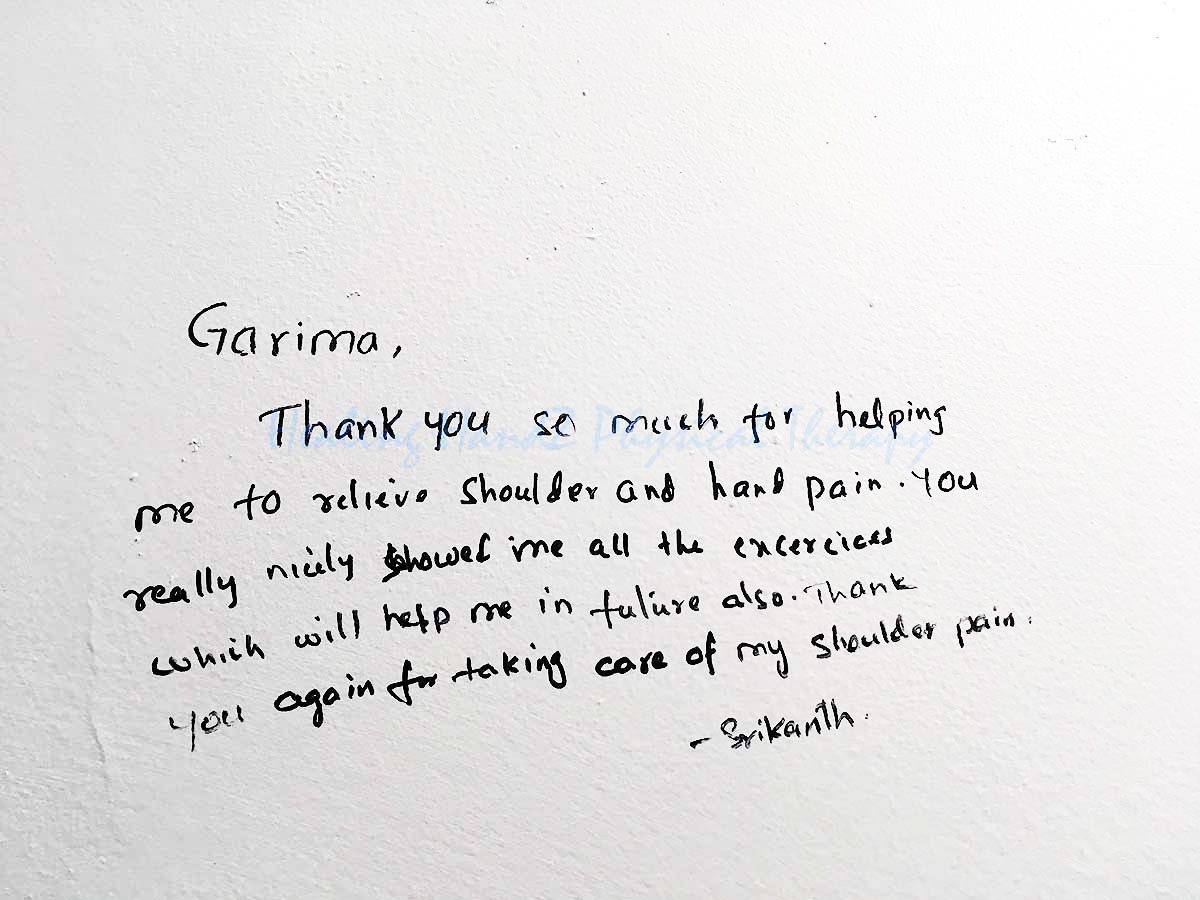 Garima,
Thank you so much for helping
Healing HandZ Physical Therapy
me to relieve shoulder and hand pain. You
really nicely showed me all the excercices
which will help me in future also. Thank
you again for taking care of my shoulder pain.
- Srikanth.